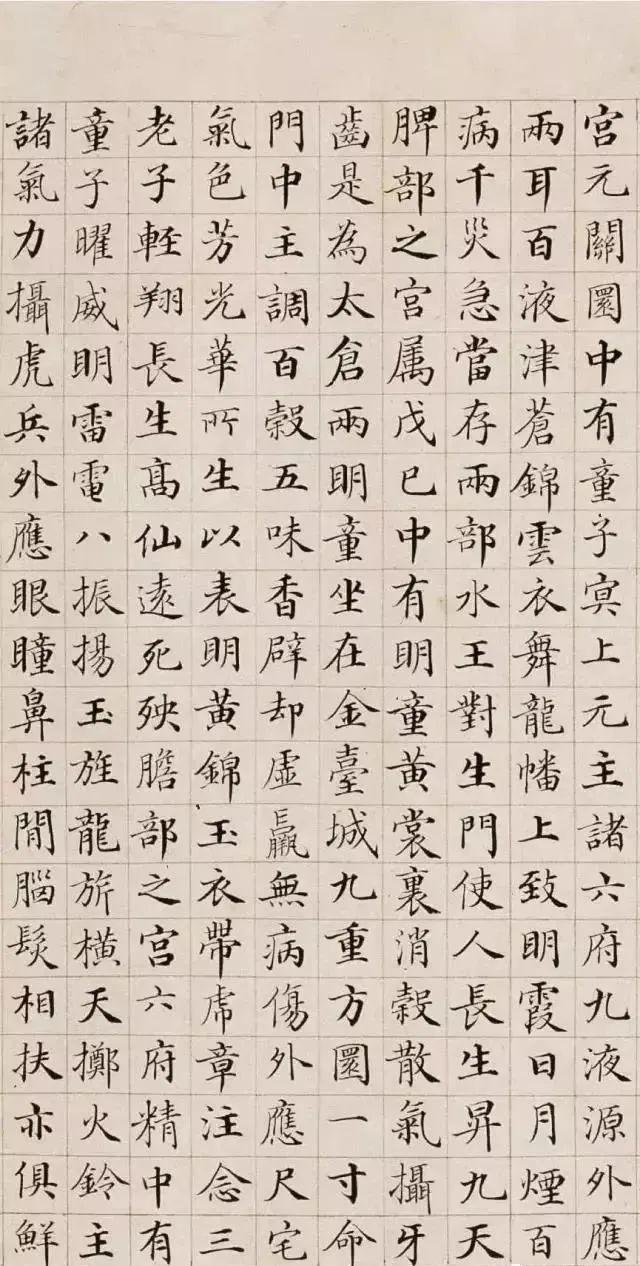 宮元關圜中有童子㝠上元主諸六府九液源外應
兩耳百液津蒼錦雲衣舞龍幡上致明霞日月煙百
病千災急當存兩部水王對生門使人長生昇九天
脾部之宮属戊己中有明童黃裳裏消穀散氣攝牙
齒是為太倉兩明童坐在金臺城九重方圜一寸命
門中主調百穀五味香辟却虛羸無病傷外應尺宅
氣色芳光華所生以表明黃錦玉衣帶虎章注念三
老子輕翔長生高仙遠死殃膽部之宮六府精中有
童子曜威明雷電八振揚玉旌龍旂橫天擲火鈴主
諸氣力攝虎兵外應眼瞳鼻柱間腦髮相扶亦俱鮮